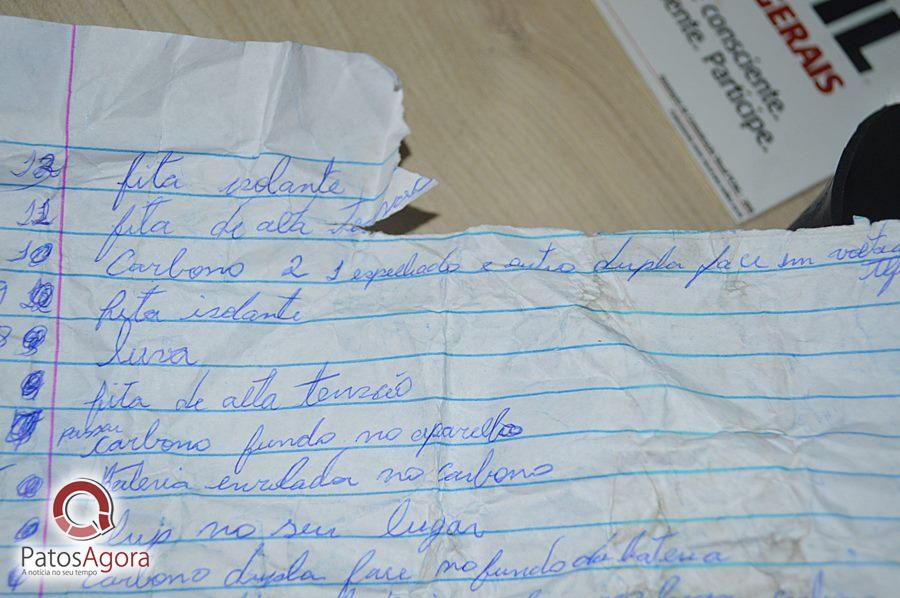 IL
GERAIS
consciente.
ente. Participe.
12 fita isolante
11 fita de alta
10 Carbono 2 1 espelhado e outro dupla face em volta
9 fita isolante
8 luva
fita de alta tenzão
passar carbono fundo no aparelho
bateria enrolada no carbono
no seu lugar
carbono dupla face no fundo da bateria
PatosAgora
A notícia no seu tempo